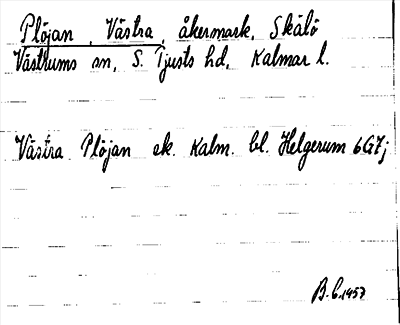 Plöjan, Västra, åkermark, Skälö
Västrums sn, S. Tjusts hd, Kalmar l.
Västra Plöjan ek. Kalm. bl. Helgerum 6G7j
B.C. 1957